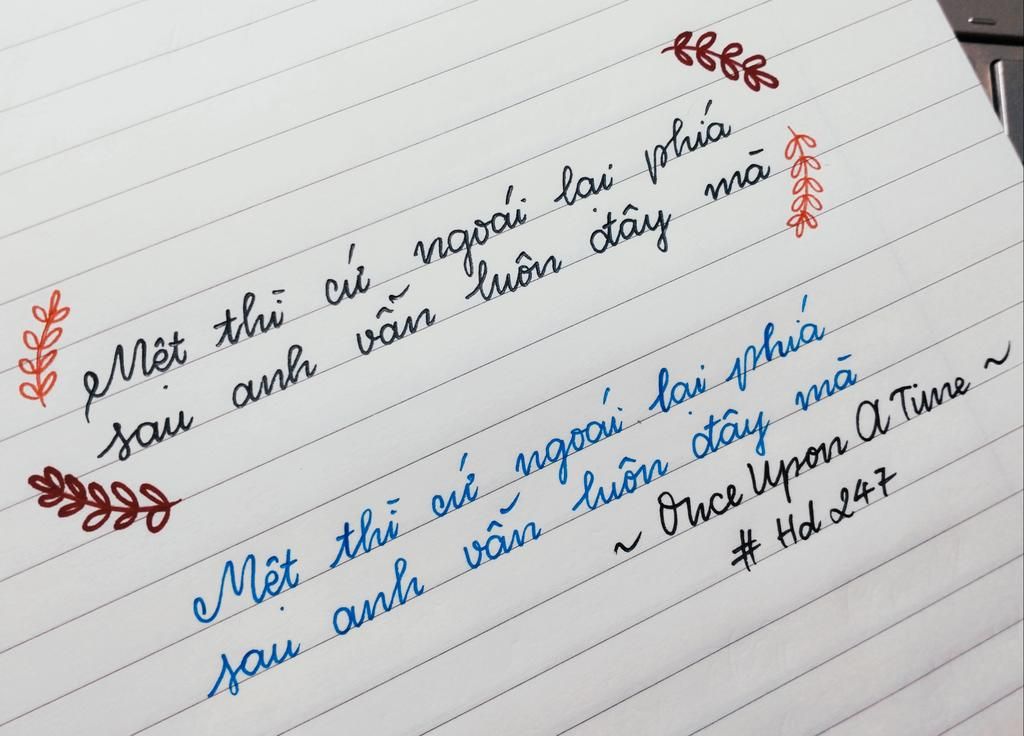 Mệt thì cứ ngoái lại phía
sau anh vẫn luôn ở đây mà
Mệt thì cứ ngoái lại phía
sau anh vẫn luôn ở đây mà
~ Once Upon A Time ~
# Hd 247